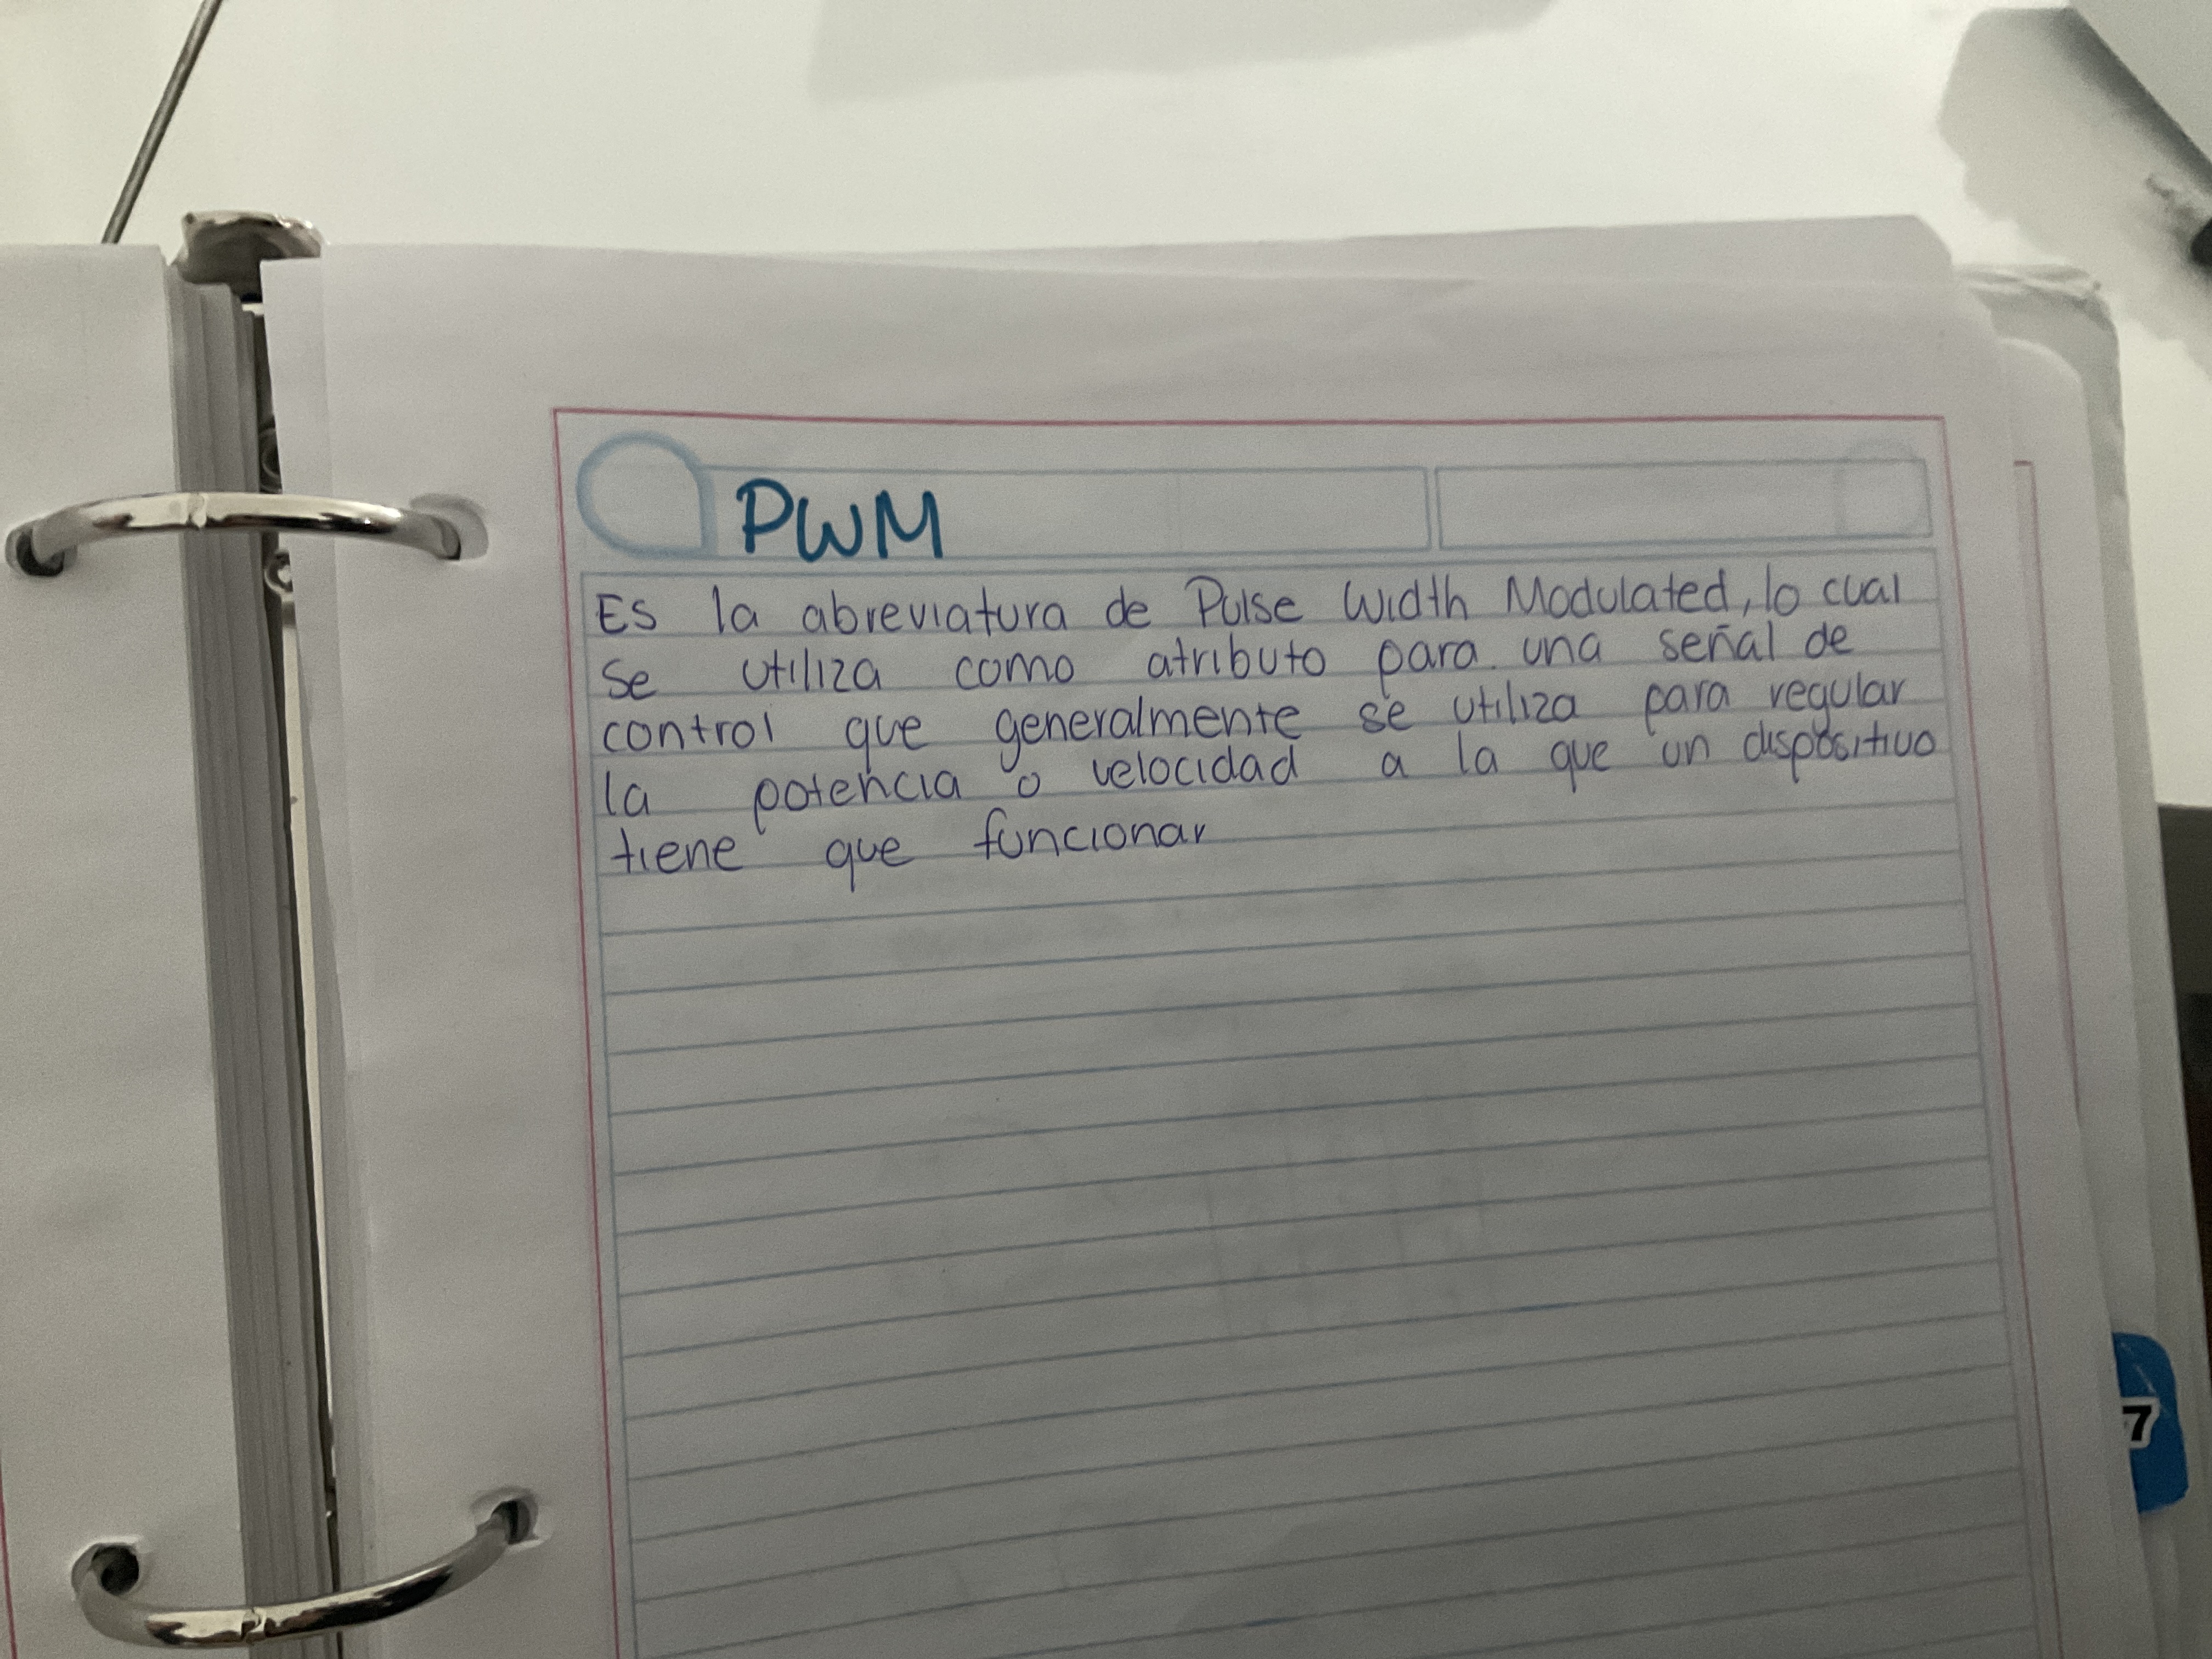 PWM
Es la abreviatura de Pulse Width Modulated, lo cual
se utiliza como atributo para una señal de
control que generalmente se utiliza para regular
la potencia o velocidad a la que un dispositivo
tiene que funcionar
7